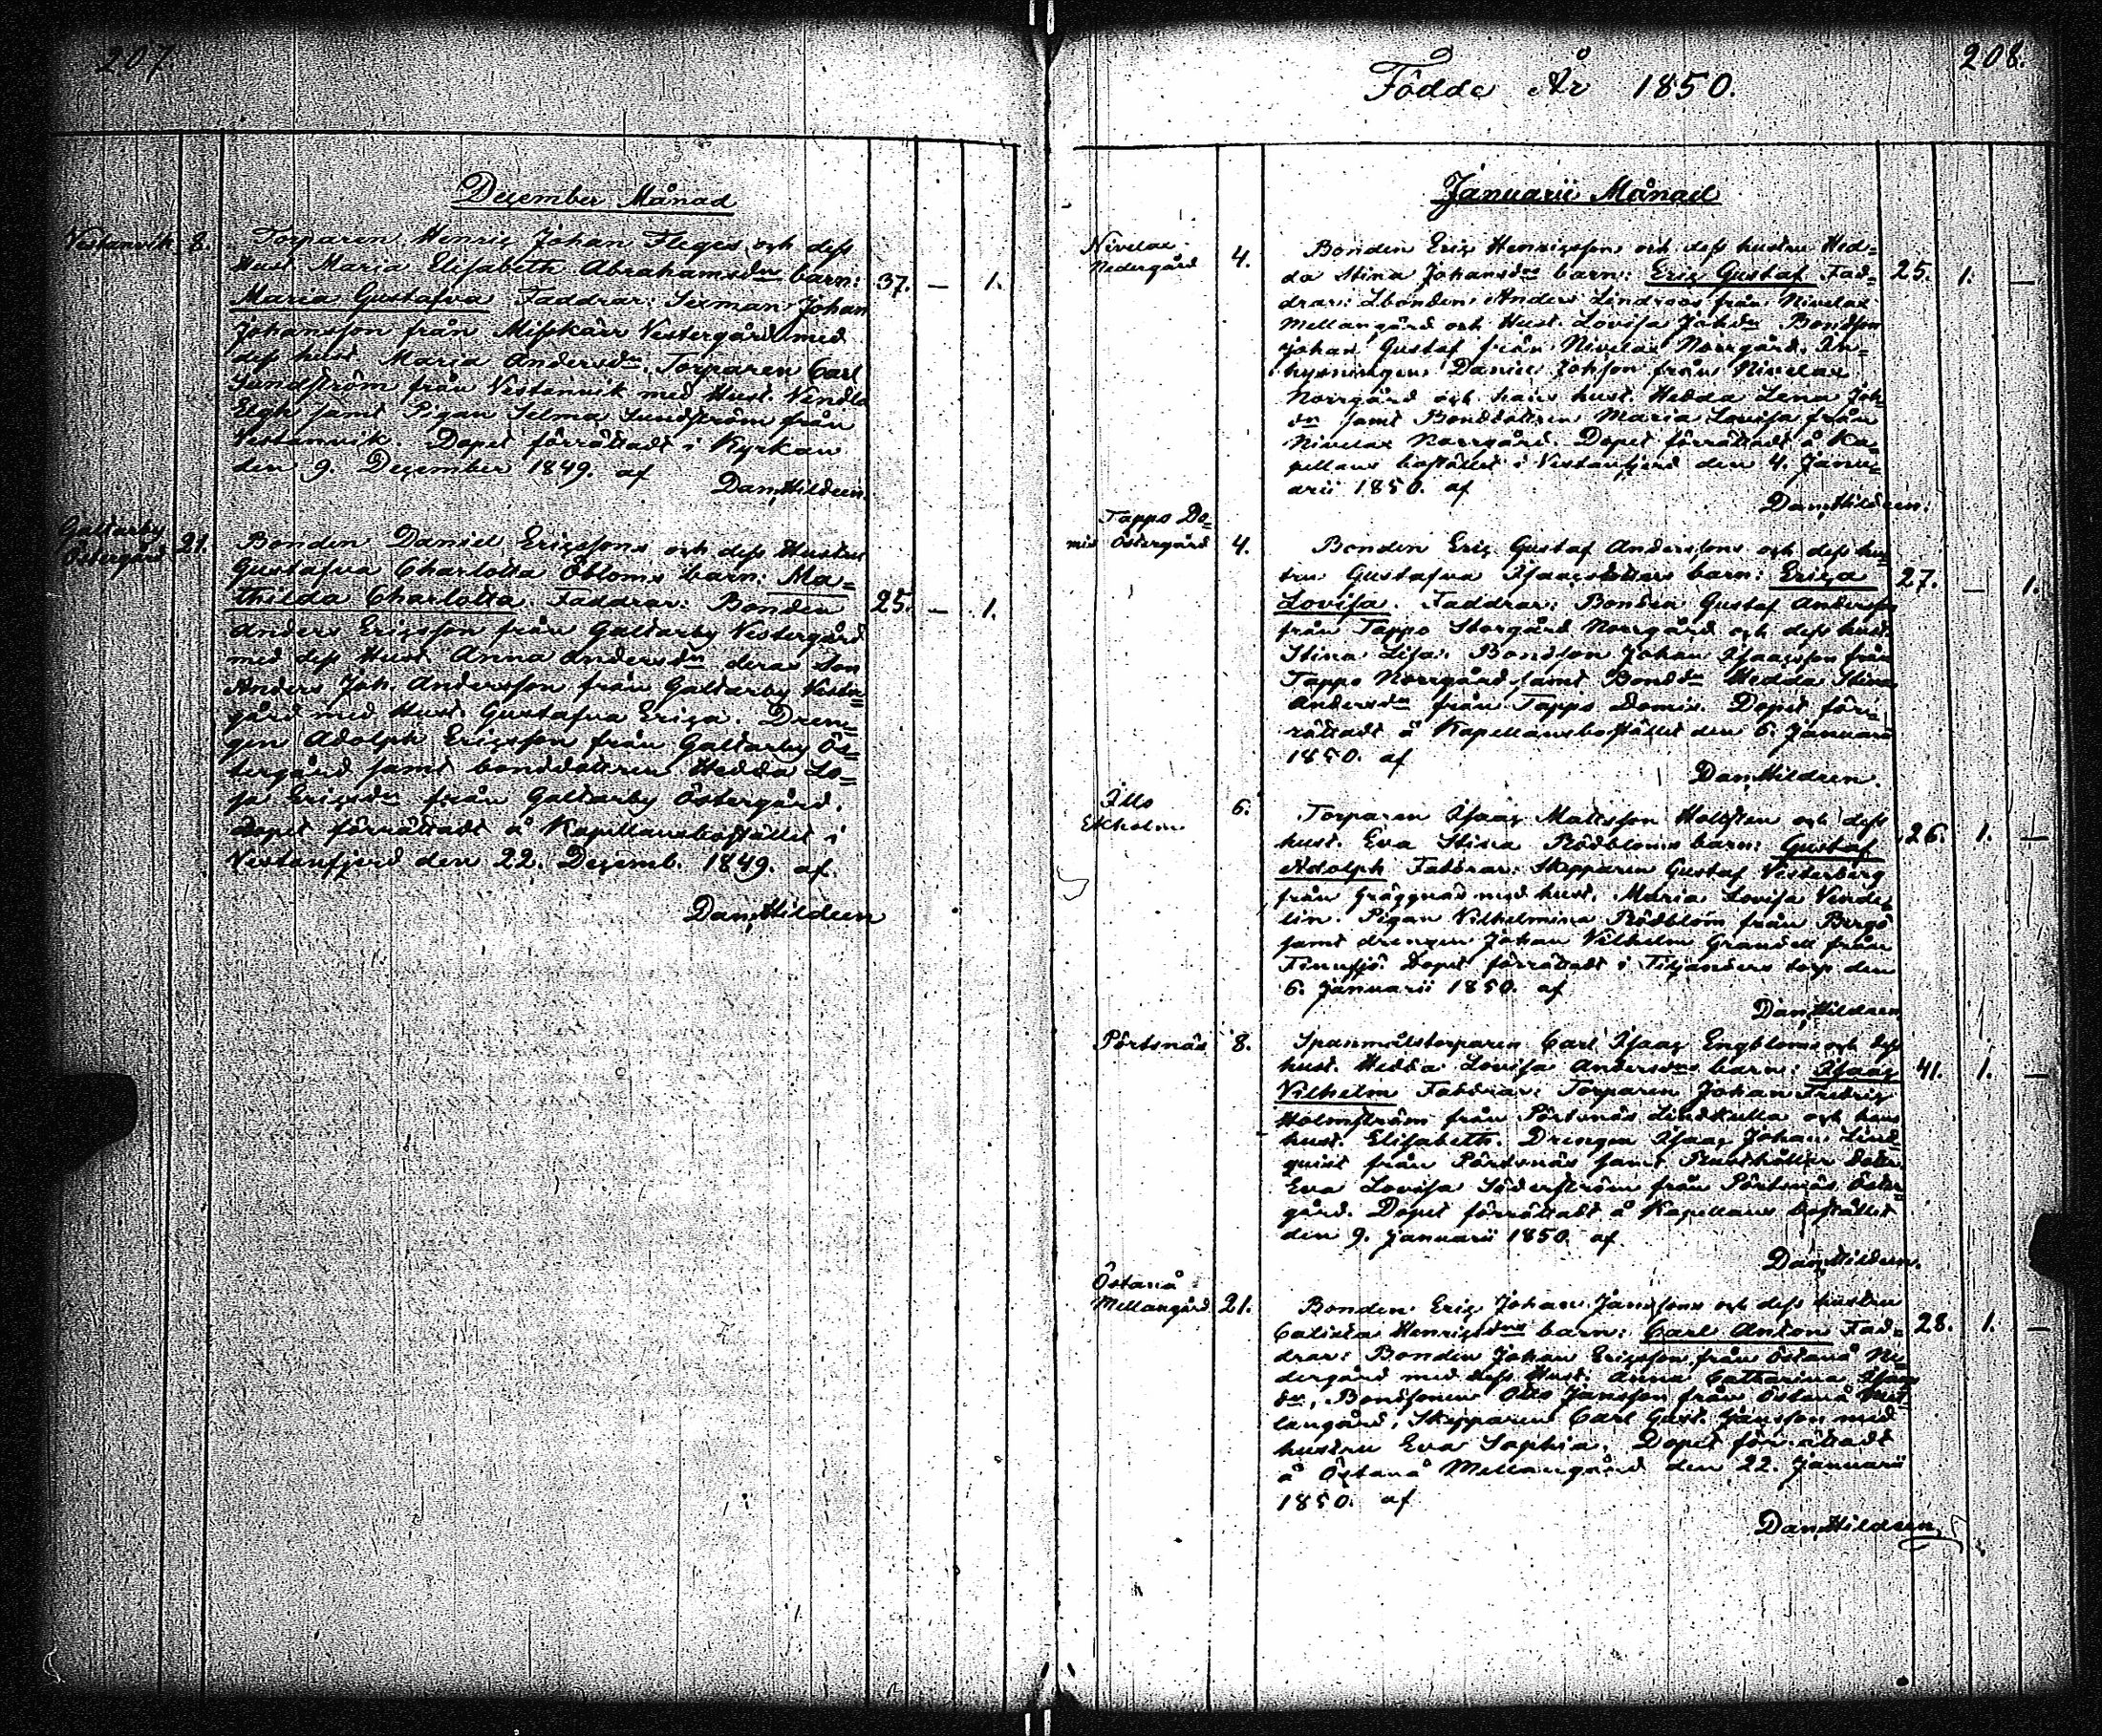 207.
December Månad
Vestanvik 8. Torparen Henric Johan Fleges och dess
Hust. Maria Elisabeth Abrahamsdrs barn: 37. — 1.
Maria Gustafva Faddrar: Sexman Johan
Johansson från Misskärr Vestergård med
dess hust. Maria Andersdr. Torparen Carl
Sundström från Vestanvik med Hust. Vendla
Elgh samt Pigan Selma Sundström från
Vestanvik. Dopet förrättadt i Kyrkan
den 9. December 1849. af
Dan. Hildeen.
Galtarby
Östergård 21. Bonden Daniel Ericssons och dess Hustru
Gustafva Charlotta Öbloms barn: Ma=
thilda Charlotta. Faddrar: Bonden 25. — 1.
Anders Ericsson från Galtarby Vestergård
med dess Hust. Anna Andersdr deras Son
Anders Joh. Andersson från Galtarby Vester=
gård med Hust. Gustafva Erica. Dren=
gen Adolph Ericsson från Galtarby Ös=
tergård samt bonddottren Hedda Lo=
sa Ericsdr från Galtarby Östergård.
Dopet förrättadt å Kapellansbostället i
Vestanfjerd den 22. Decemb. 1849. af
Dan. Hildeen
208.
Födde År 1850.
Januarii Månad
Nivelax
Nedergård 4. Bonden Eric Henricssons och dess hustru Hed=
da Stina Johansdrs barn: Eric Gustaf. Fad= 25. 1. —
drar: Lbonden Anders Lindroos från Nivelax
Mellangård och Hust. Lovisa Johdr. Bondson
Johan Gustaf från Nivelax Norrgård. In=
hysningen Daniel Johsson från Nivelax
Norrgård och hans hust. Hedda Lena Joh=
dr samt Bonddottren Maria Lovisa från
Nivelax Norrgård. Dopet förrättadt å Ka=
pellans bostället i Vestanfjerd den 4. Janu=
arii 1850. af
Dan. Hildeen.
Tappo Do=
mis Östergård 4. Bonden Eric Gustaf Anderssons och dess hu=
tru Gustafva Isaacsdotters barn: Erica 27. — 1.
Lovisa. Faddrar: Bonden Gustaf Andersson
från Tappo Storgård Norrgård och dess hust.
Stina Lisa. Bondson Johan Isaacsson från
Tappo Norrgård samt Bonddr Hedda Stina
Andersdr från Tappo Domis. Dopet för=
rättadt å Kapellansbostället den 6. Januarii
1850. af
Dan. Hildeen.
Illo
Ekholm 6. Torparen Isaac Mattsson Hollsten och dess
hust. Eva Stina Rödbloms barn: Gustaf 26. 1. —
Adolph Faddrar: Skepparen Gustaf Vesterberg
från Gräggnäs med hust. Maria Lovisa Vende=
lin. Pigan Vilhelmina Rödblom från Bergö
samt drengen Johan Vilhelm Grandell från
Finnsjö. Dopet förrättadt i Titjanders torp den
6. Januarii 1850. af
Dan. Hildeen
Pörtsnäs 8. Spanmålstorparen Carl Isaac Engbloms och dess
hust. Hedda Lovisa Andersdrs barn: Isaac 41. 1. —
Vilhelm Faddrar: Torparen Johan Fredric
Holmström från Pörtsnäs Lindkulla och hans
hust. Elisabeth. Drengen Isaac Johan Lind=
quist från Pörtsnäs samt Rusthållar dottr.
Eva Lovisa Söderström från Pörtsnäs Öster=
gård. Dopet förrättadt å Kapellans bostället
den 9. Januarii 1850. af
Dan. Hildeen.
Östanå
Mellangård 21. Bonden Eric Johan Janssons och dess hustru
Calixta Henricsdrs barn: Carl Anton Fad= 28. 1. —
drar: Bonden Johan Ericsson från Östanå Ne=
dergård med dess Hust. Anna Catharina Isaacs
dr, Bondsonen Otto Jansson från Östanå Mel=
langård, Skepparen Carl Gust. Jansson med
hustru Eva Sophia. Dopet förrättadt
å Östanå Mellangård den 22. Januarii
1850. af
Dan. Hildeen.